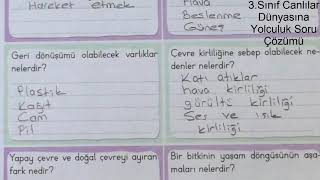 Hareket etmek
Hava
Beslenme
Güneş
3.Sınıf Canlılar
Dünyasına
Yolculuk Soru
Çözümü
Geri dönüşümü olabilecek varlıklar
nelerdir?
Plastik
Kağıt
Cam
Pil
Çevre kirliliğine sebep olabilecek ne-
denler nelerdir?
Katı atıklar
hava kirliliği
gürültü kirliliği
Ses ve ışık
kirliliği
Yapay çevre ve doğal çevreyi ayıran
fark nedir?
Bir bitkinin yaşam döngüsünün aşa-
maları nelerdir?